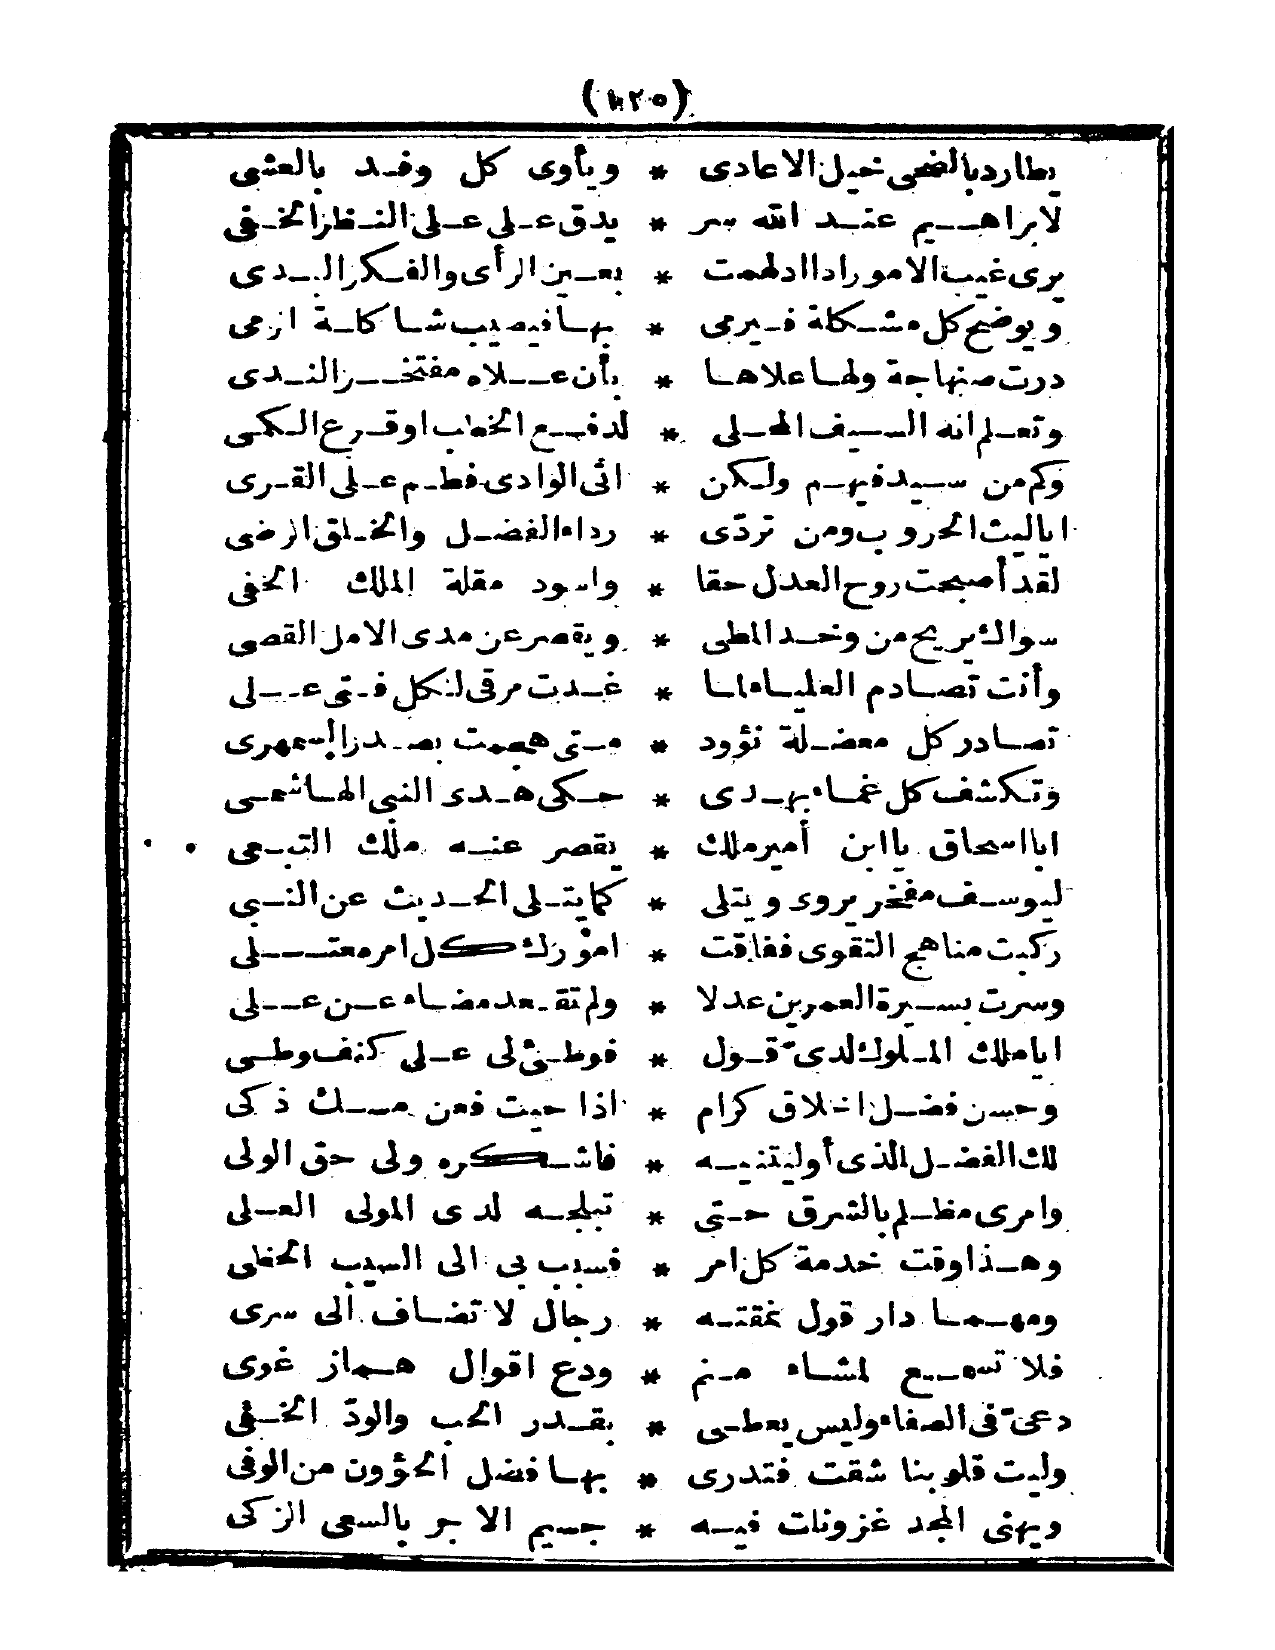 (١٢٥)
يطارد بالضحى خيل الاعادى * و يأوى كل وفد بالعشى
لابراهيم عند الله سر * يدق على على النظر الخفى
يرى غيب الامور اذا ادلهمت * بعين الرأى والفكر البدى
و يوضح كل مشكلة فيرمى * بها فيصيب شاكلة الرمى
درت صنهاجة ولها علاها * بأن علاه مفتخر الندى
وتعلم انه السيف المحلى * لدفع الخطب او قرع الكمى
وكم من سيد فيهم ولكن * اتى الوادى فطم على القرى
ايا ليث الحروب ومن تردّى * رداء الفضل والخلق الرضى
لقد أصبحت روح العدل حقا * واسود مقلة الملك الخفى
سواك يريح من وخد المطى * و يقصر عن مدى الامل القصى
وأنت تصادم العلياء لما * غدت مرقى لكل فتى على
تصادر كل معضلة تؤود * متى هجمت بصدر السمهرى
وتكشف كل غماء بهدى * حكى هدى النبى الهاشمى
ايا اسحاق يا ابن أمير ملك * يقصر عنه ملك التبعى
ليوسف مفخر يروى و يتلى * كما يتلى الحديث عن النبى
ركبت مناهج التقوى ففاقت * امورك كل امر معتلى
وسرت بسيرة العمرين عدلا * ولم تقعد مضاء عن على
ايا ملك الملوك لدىّ قول * فوطئ لى على كنف وطى
وحسن فضل اخلاق كرام * اذا حيت فعن مسك ذكى
لك الفضل الذى أوليتنيه * فاشكره ولى حق الولى
وامرى مظلم بالشرق حتى * تبلجه لدى المولى العلى
وهذا وقت خدمة كل امر * فسبب بى الى السيب الحظى
ومهما دار قول نمقته * رجال لا تضاف الى سرى
فلا تسمع لمشاء منم * ودع اقوال هماز غوى
دعىّ فى الصفاء وليس يعطى * بقدر الحب والودّ الخفى
وليت قلوبنا شقت فتدرى * بها فضل الخؤون من الوفى
ويهنى المجد غزونات فيه * جسيم الاجر بالسعى الزكى